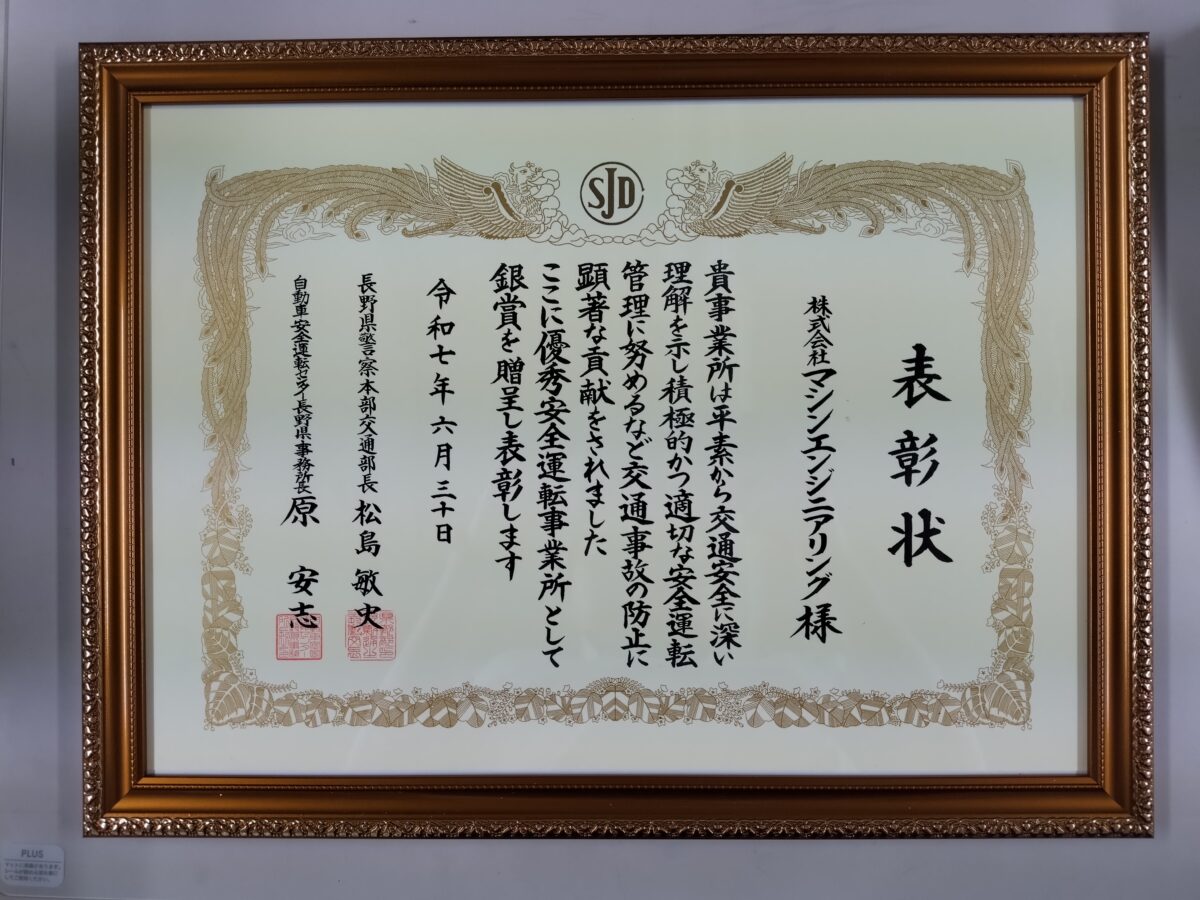 SJD
表彰状
株式会社マシンエンジニアリング様
貴事業所は平素から交通安全に深い
理解を示し積極的かつ適切な安全運転
管理に努めるなど交通事故の防止に
顕著な貢献をされました
ここに優秀安全運転事業所として
銀賞を贈呈し表彰します
令和七年六月三十日
長野県警察本部交通部長 松島敏史
自動車安全運転センター長野県事務所長 原安志
PLUS